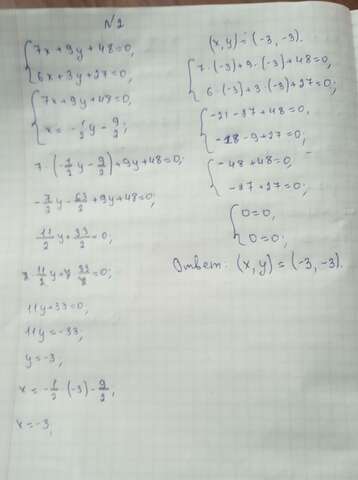 №2
{7x+9y+48=0,
{6x+3y+27=0;
{7x+9y+48=0,
{x=-1/2y-9/2;
7·(-1/2y-9/2)+9y+48=0;
-7/2y-63/2+9y+48=0;
11/2y+33/2=0;
2·11/2y+2·33/2=0;
11y+33=0;
11y=-33;
y=-3;
x=-1/2·(-3)-9/2;
x=-3;
(x,y)=(-3,-3).
{7·(-3)+9·(-3)+48=0,
{6·(-3)+3·(-3)+27=0;
{-21-27+48=0,
{-18-9+27=0;
{-48+48=0,
{-27+27=0;
{0=0,
{0=0;
Ответ: (x,y)=(-3,-3).